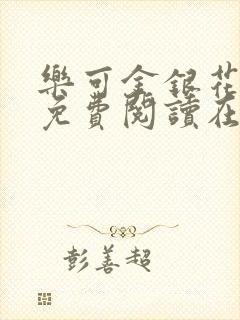 樂可金銀花
免費閱讀在
彭善超